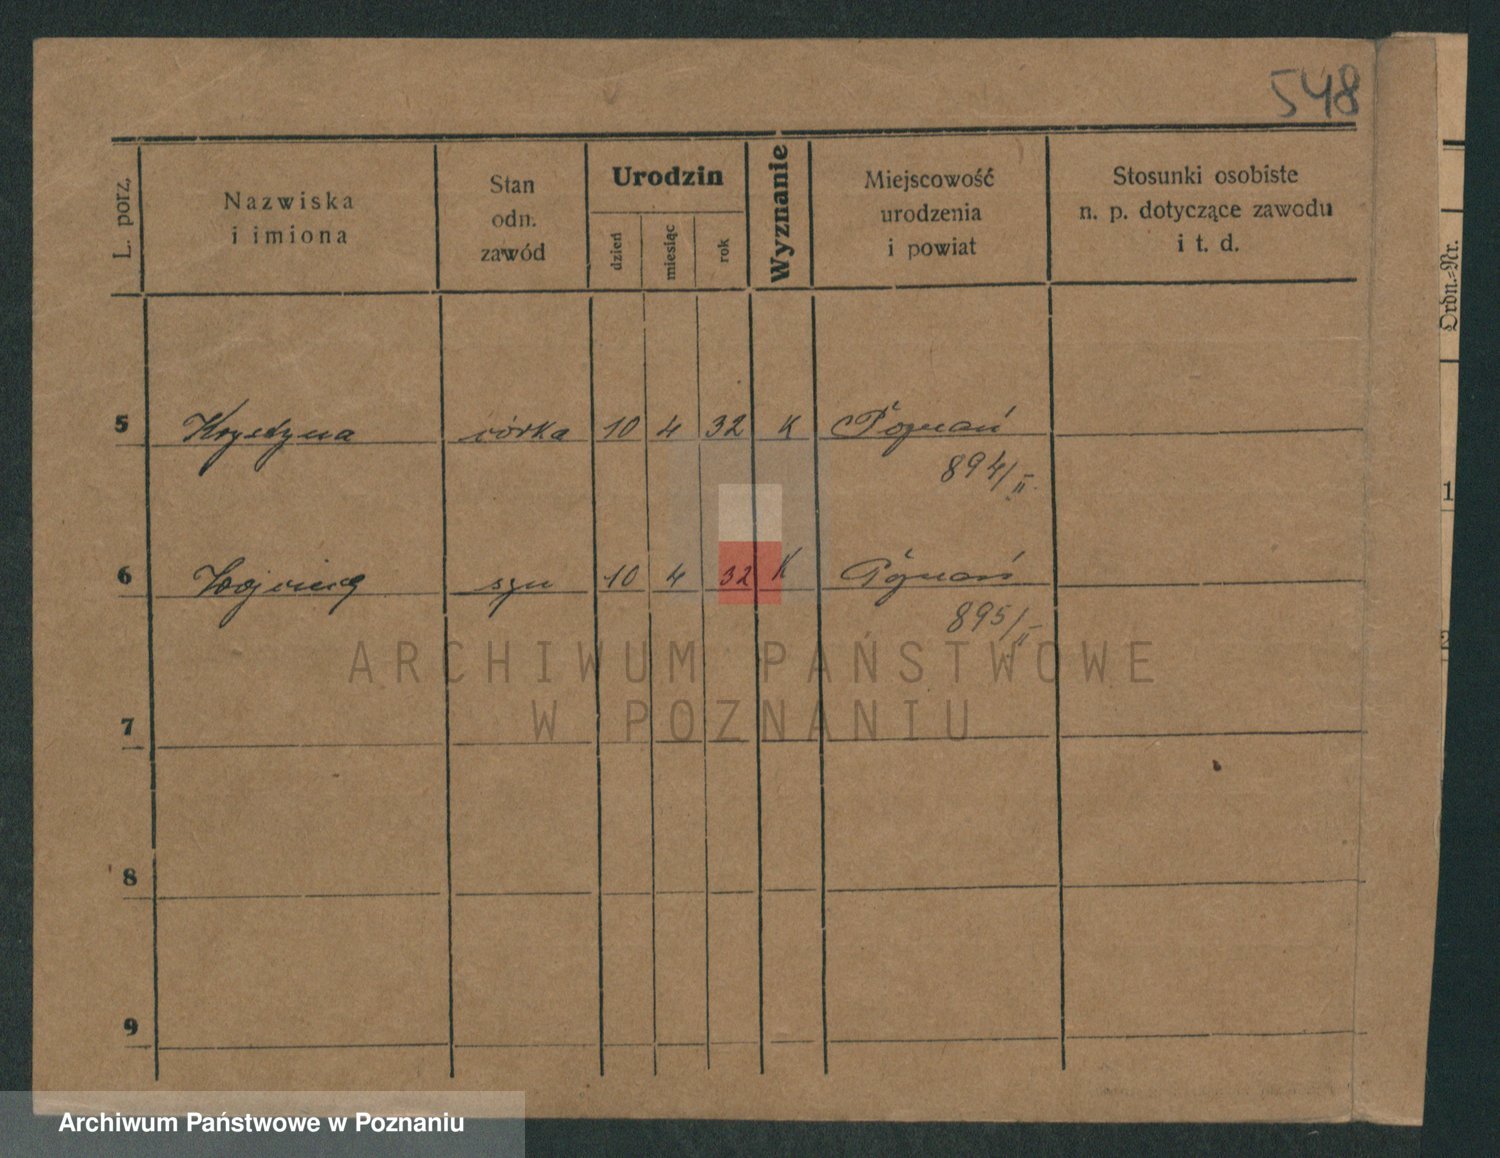 548
L. porz.
Nazwiska
i imiona
Stan
odn.
zawód
Urodzin
dzień
miesiąc
rok
Wyznanie
Miejscowość
urodzenia
i powiat
Stosunki osobiste
n. p. dotyczące zawodu
i t. d.
Ordn.-Nr.
5 Krystyna córka 10 4 32 K Poznań
894/II.
1
6 Wojciech syn 10 4 32 K Poznań
895/II
2
ARCHIWUM PAŃSTWOWE
W POZNANIU
7
8
9
Archiwum Państwowe w Poznaniu